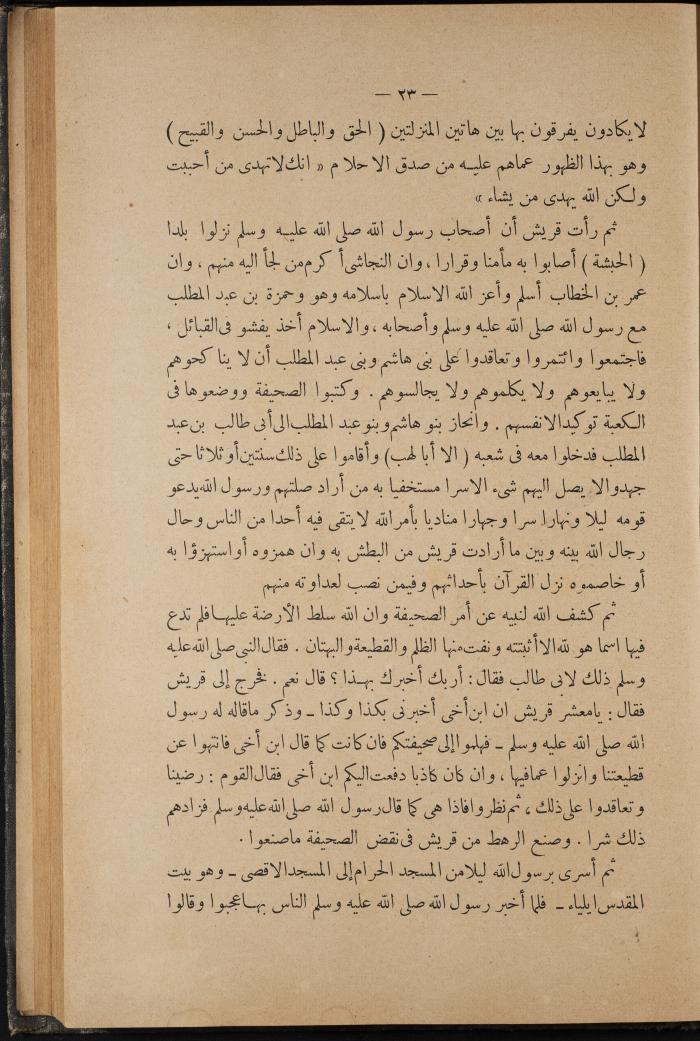 — ٢٣ —
لا يكادون يفرقون بها بين هاتين المنزلتين ( الحق والباطل والحسن والقبيح )
وهو بهذا الظهور عماهم عليه من صدق الاحلام « انك لا تهدى من أحببت
ولكن الله يهدى من يشاء »
ثم رأت قريش أن أصحاب رسول الله صلى الله عليه وسلم نزلوا بلدا
( الحبشة ) أصابوا به مأمنا وقرارا ، وان النجاشى أكرم من لجأ اليه منهم ، وان
عمر بن الخطاب أسلم وأعز الله الاسلام باسلامه وهو وحمزة بن عبد المطلب
مع رسول الله صلى الله عليه وسلم وأصحابه ، والاسلام أخذ يفشو فى القبائل ،
فاجتمعوا وائتمروا وتعاقدوا على بنى هاشم وبنى عبد المطلب أن لا ينا كحوهم
ولا يبايعوهم ولا يكلموهم ولا يجالسوهم . وكتبوا الصحيفة ووضعوها فى
الكعبة توكيدا لانفسهم . وانحاز بنو هاشم وبنو عبد المطلب الى أبى طالب بن عبد
المطلب فدخلوا معه فى شعبه ( الا أبا لهب ) وأقاموا على ذلك سنتين أو ثلاثا حتى
جهدوا لا يصل اليهم شىء الا سرا مستخفيا به من أراد صلتهم ورسول الله يدعو
قومه ليلا ونهارا سرا وجهارا مناديا بأمر الله لا يتقى فيه أحدا من الناس وحال
رجال الله بينه وبين ما أرادت قريش من البطش به وان همزوه أو استهزؤا به
أو خاصموه نزل القرآن بأحداثهم وفيمن نصب لعداوته منهم
ثم كشف الله لنبيه عن أمر الصحيفة وان الله سلط الأرضة عليها فلم تدع
فيها اسما هو لله الا أثبتته ونفت منها الظلم والقطيعة والبهتان . فقال النبى صلى الله عليه
وسلم ذلك لابى طالب فقال : أربك أخبرك بهذا ؟ قال نعم . فخرج إلى قريش
فقال : يامعشر قريش ان ابن أخى أخبرنى بكذا وكذا ــ وذكر ماقاله له رسول
الله صلى الله عليه وسلم ــ فهلموا إلى صحيفتكم فان كانت كما قال ابن أخى فانتهوا عن
قطيعتنا وانزلوا عما فيها ، وان كان كاذبا دفعت اليكم ابن أخى فقال القوم : رضينا
وتعاقدوا على ذلك ، ثم نظروا فاذا هى كما قال رسول الله صلى الله عليه وسلم فزادهم
ذلك شرا . وصنع الرهط من قريش فى نقض الصحيفة ماصنعوا .
ثم أسرى برسول الله ليلا من المسجد الحرام إلى المسجد الاقصى ــ وهو بيت
المقدس ايلياء ــ فلما أخبر رسول الله صلى الله عليه وسلم الناس بها عجبوا وقالوا